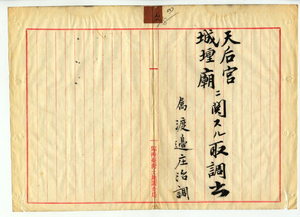 天后宮
城壇廟
ニ関スル取調書
属 渡邉庄治調